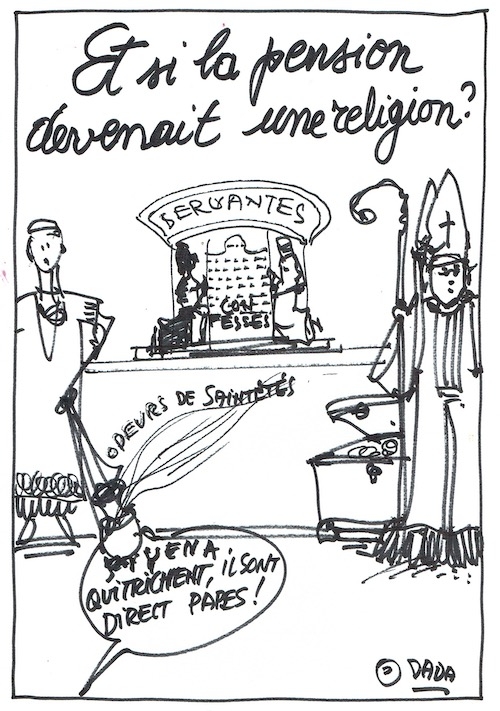 Et si la pension
devenait une religion?
SERVANTES
CON
FESSES
ODEURS DE SAINTETÉS
Y EN A
QUI TRICHENT, ILS SONT
DIRECT PAPES!
DADA